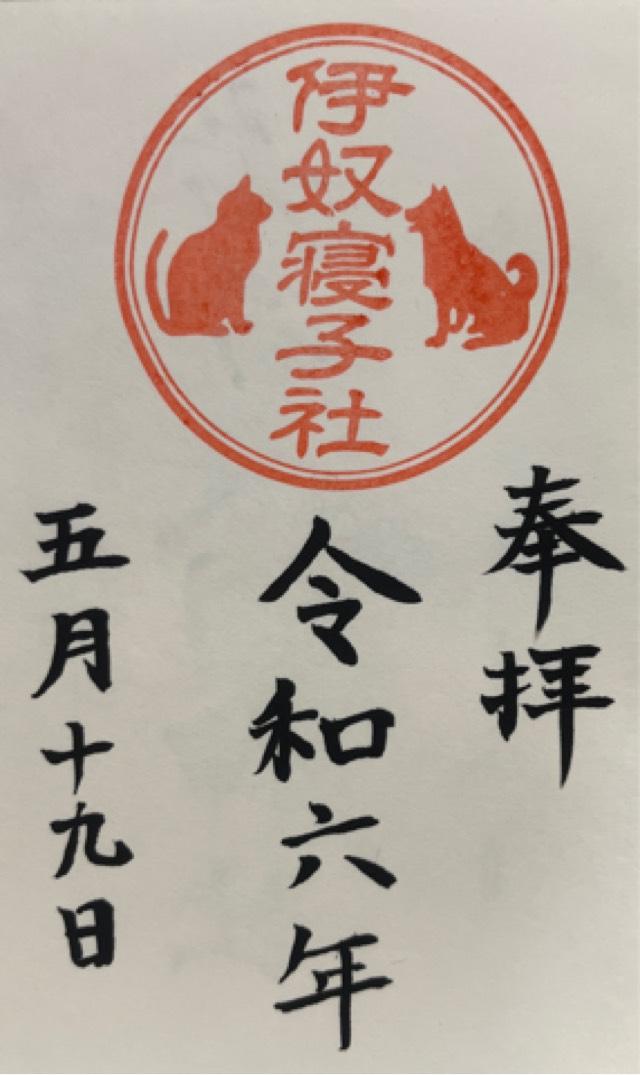 伊奴寝子社
奉拝
令和六年
五月十九日